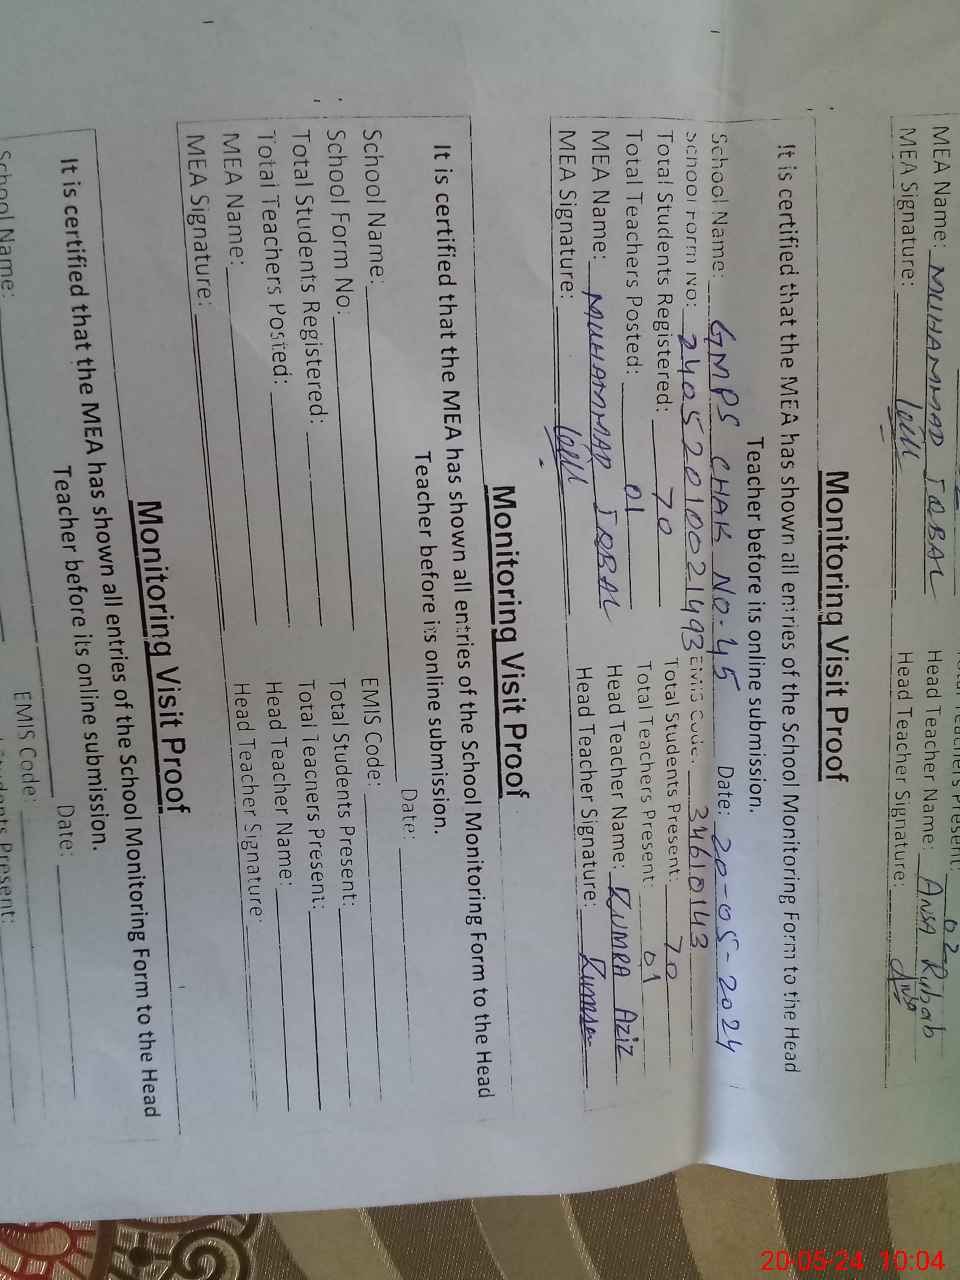 Teachers Present: 02
MEA Name: MUHAMMAD IQBAL Head Teacher Name: ANSA Rubab
MEA Signature: Head Teacher Signature: Ansa
Monitoring Visit Proof
It is certified that the MEA has shown all entries of the School Monitoring Form to the Head
Teacher before its online submission.
School Name: GMPS CHAK NO. 45 Date: 20-05-2024
School Form No: 24052010021493 EMIS Code: 34610143
Total Students Registered: 70 Total Students Present: 70
Total Teachers Posted: 01 Total Teachers Present: 01
MEA Name: MUHAMMAD IQBAL Head Teacher Name: KUMRA Aziz
MEA Signature: Head Teacher Signature:
Monitoring Visit Proof
It is certified that the MEA has shown all entries of the School Monitoring Form to the Head
Teacher before its online submission.
School Name: Date:
School Form No. EMIS Code:
Total Students Registered: Total Students Present:
Total Teachers Posted: Total Teachers Present:
MEA Name: Head Teacher Name:
MEA Signature: Head Teacher Signature:
Monitoring Visit Proof
It is certified that the MEA has shown all entries of the School Monitoring Form to the Head
Teacher before its online submission.
School Name: Date:
EMIS Code:
Present:
20-05-24 10:04